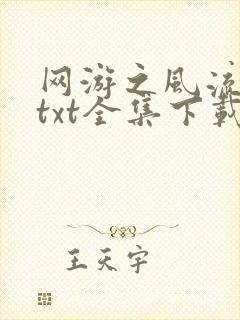 网游之风流
txt全集下载
王天宇